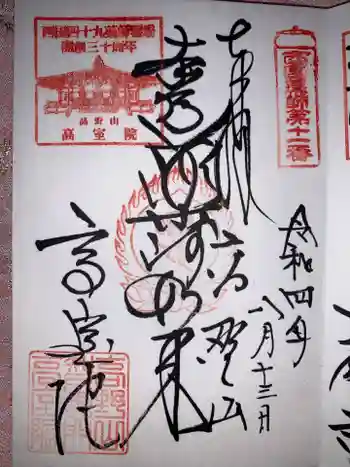 西国薬師第十一番
奉拝 高野山
令和四年
八月十三日
薬師如来
西国四十九薬師霊場
開創三十周年
高野山
高室院
高室院
高野山
高室院